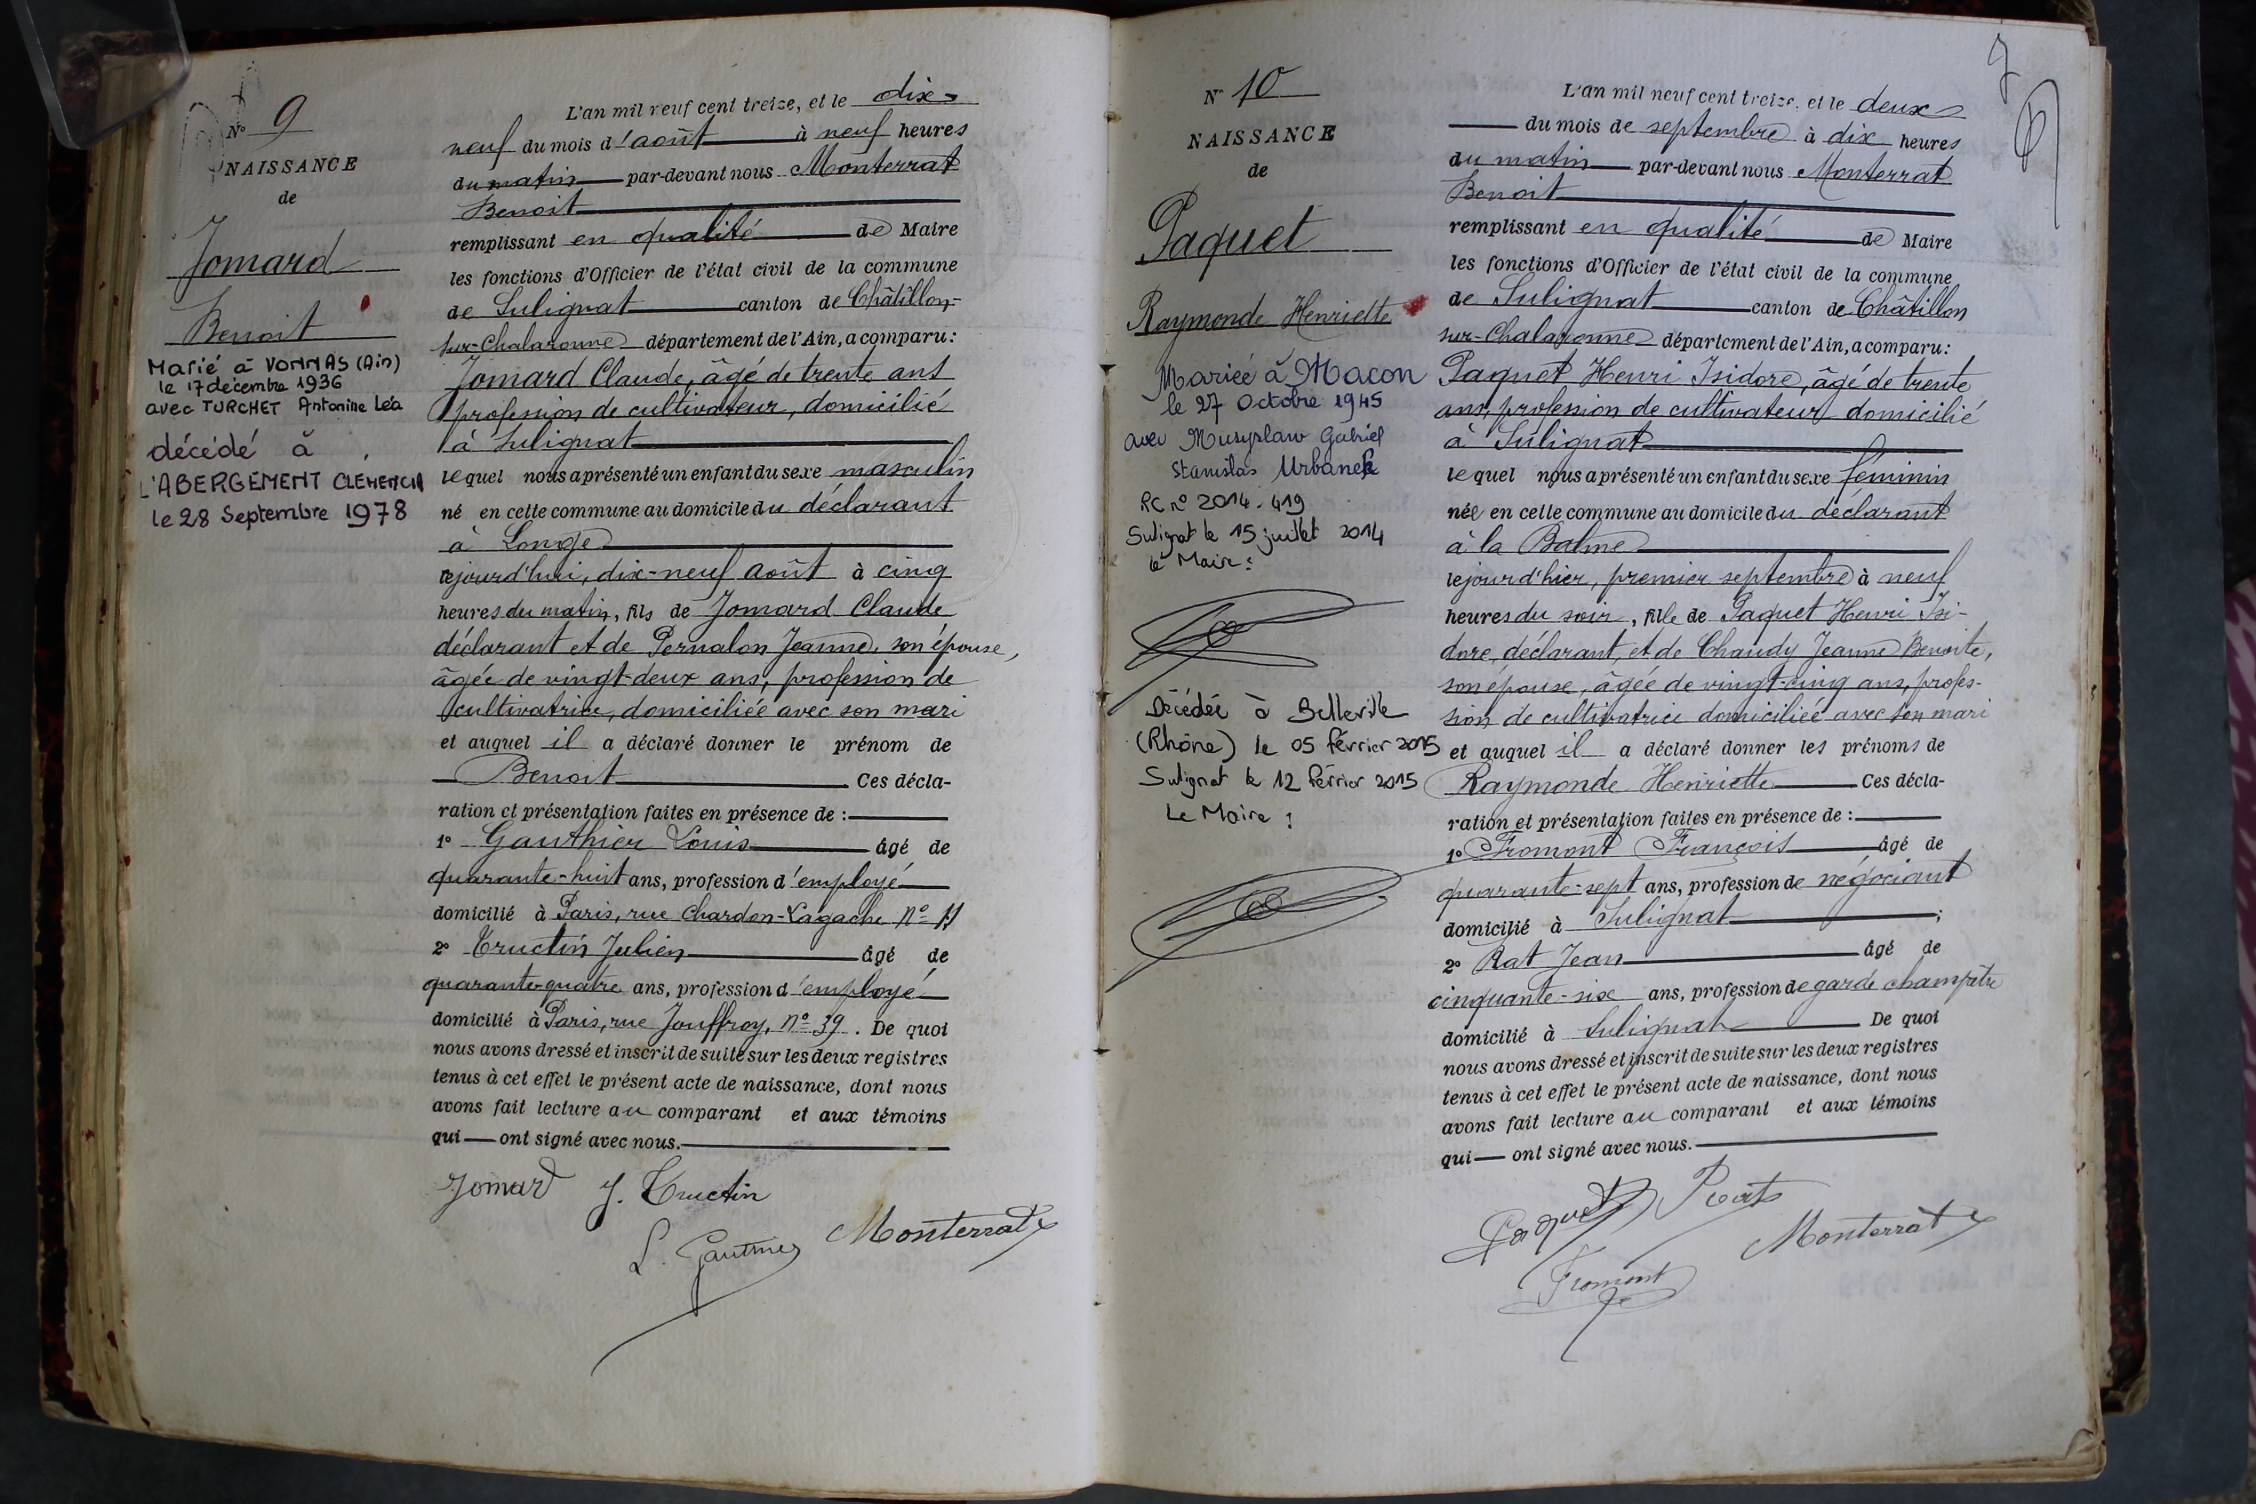 N° 9
NAISSANCE
de
Jomard
Benoit
Marié à VONNAS (Ain)
le 17 décembre 1936
avec TURCHET Antonine Léa
décédé à
L'ABERGEMENT CLEMENCIA
le 28 Septembre 1978
L'an mil neuf cent treize, et le dix-
neuf du mois d'août à neuf heures
du matin par-devant nous Monterrat
Benoit
remplissant en qualité de Maire
les fonctions d'Officier de l'état civil de la commune
de Sulignat canton de Châtillon-
sur-Chalaronne département de l'Ain, a comparu:
Jomard Claude, âgé de trente ans
profession de cultivateur, domicilié
à Sulignat
lequel nous a présenté un enfant du sexe masculin
né en cette commune au domicile du déclarant
à Longe
cejourd'hui, dix-neuf août à cinq
heures du matin, fils de Jomard Claude
déclarant et de Pernalon Jeanne, son épouse,
âgée de vingt-deux ans, profession de
cultivatrice, domiciliée avec son mari
et auquel il a déclaré donner le prénom de
Benoit Ces décla-
ration et présentation faites en présence de :
1° Gauthier Louis âgé de
quarante-huit ans, profession d'employé
domicilié à Paris, rue Chardon-Lagache N° 11
2° Tructin Julien âgé de
quarante-quatre ans, profession d'employé
domicilié à Paris, rue Jouffroy, n° 39. De quoi
nous avons dressé et inscrit de suite sur les deux registres
tenus à cet effet le présent acte de naissance, dont nous
avons fait lecture au comparant et aux témoins
qui — ont signé avec nous.
Jomard J. Tructin
L. Gauthier Monterrat
7
N° 10
NAISSANCE
de
Paquet
Raymonde Henriette
Mariée à Macon
le 27 Octobre 1945
avec
Stanislas Urbanek
RC n° 2014. 419
Sulignat le 15 juillet 2014
le Maire :
Décédée à Belleville
(Rhône) le 05 février 2015
Sulignat le 12 février 2015
Le Maire :
L'an mil neuf cent treize, et le deux
du mois de septembre à dix heures
du matin par-devant nous Monterrat
Benoit
remplissant en qualité de Maire
les fonctions d'Officier de l'état civil de la commune
de Sulignat canton de Châtillon
sur-Chalaronne département de l'Ain, a comparu:
Paquet Henri Isidore, âgé de trente
ans, profession de cultivateur domicilié
à Sulignat
lequel nous a présenté un enfant du sexe féminin
née en cette commune au domicile du déclarant
à la Balme
lejourd'hier, premier septembre à neuf
heures du soir, fille de Paquet Henri Isi-
dore, déclarant, et de Chaudy Jeanne Benoite,
son épouse, âgée de vingt-cinq ans, profes-
sion de cultivatrice domiciliée avec son mari
et auquel il a déclaré donner les prénoms de
Raymonde Henriette Ces décla-
ration et présentation faites en présence de :
1° Fromont François âgé de
quarante-sept ans, profession de négociant
domicilié à Sulignat ;
2° Rat Jean âgé de
cinquante-six ans, profession de garde champêtre
domicilié à Sulignat De quoi
nous avons dressé et inscrit de suite sur les deux registres
tenus à cet effet le présent acte de naissance, dont nous
avons fait lecture au comparant et aux témoins
qui — ont signé avec nous.
Paquet
Monterrat
Fromont